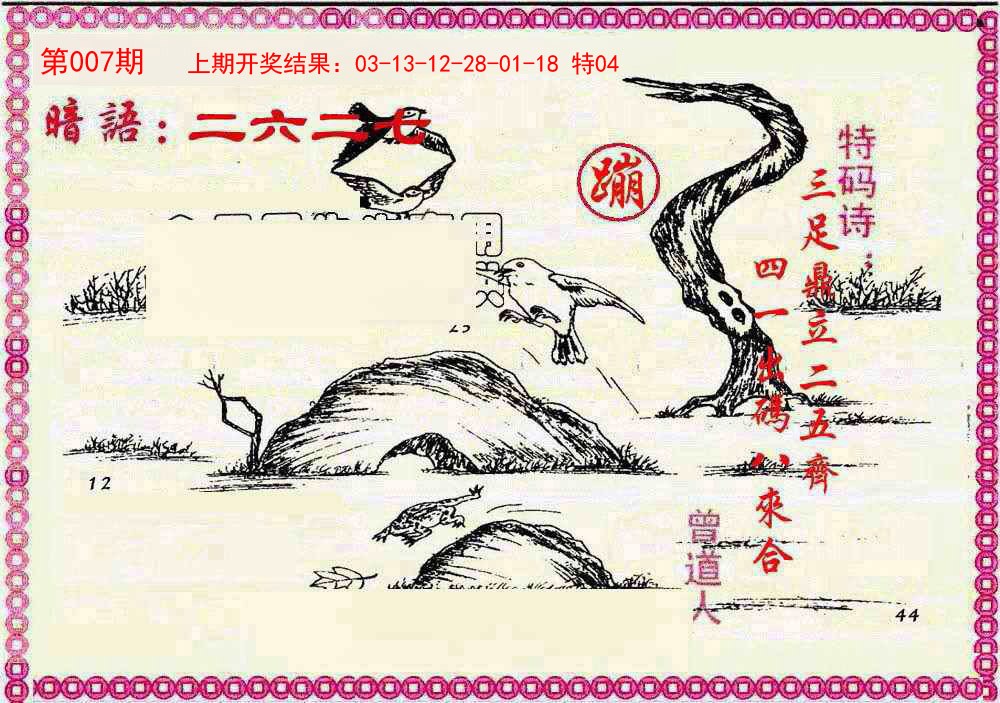 第007期
上期开奖结果：03-13-12-28-01-18 特04
暗語：二六二七
蹦
特码诗：
三足鼎立二五齊
四一出碼八來合
12
曾道人
44